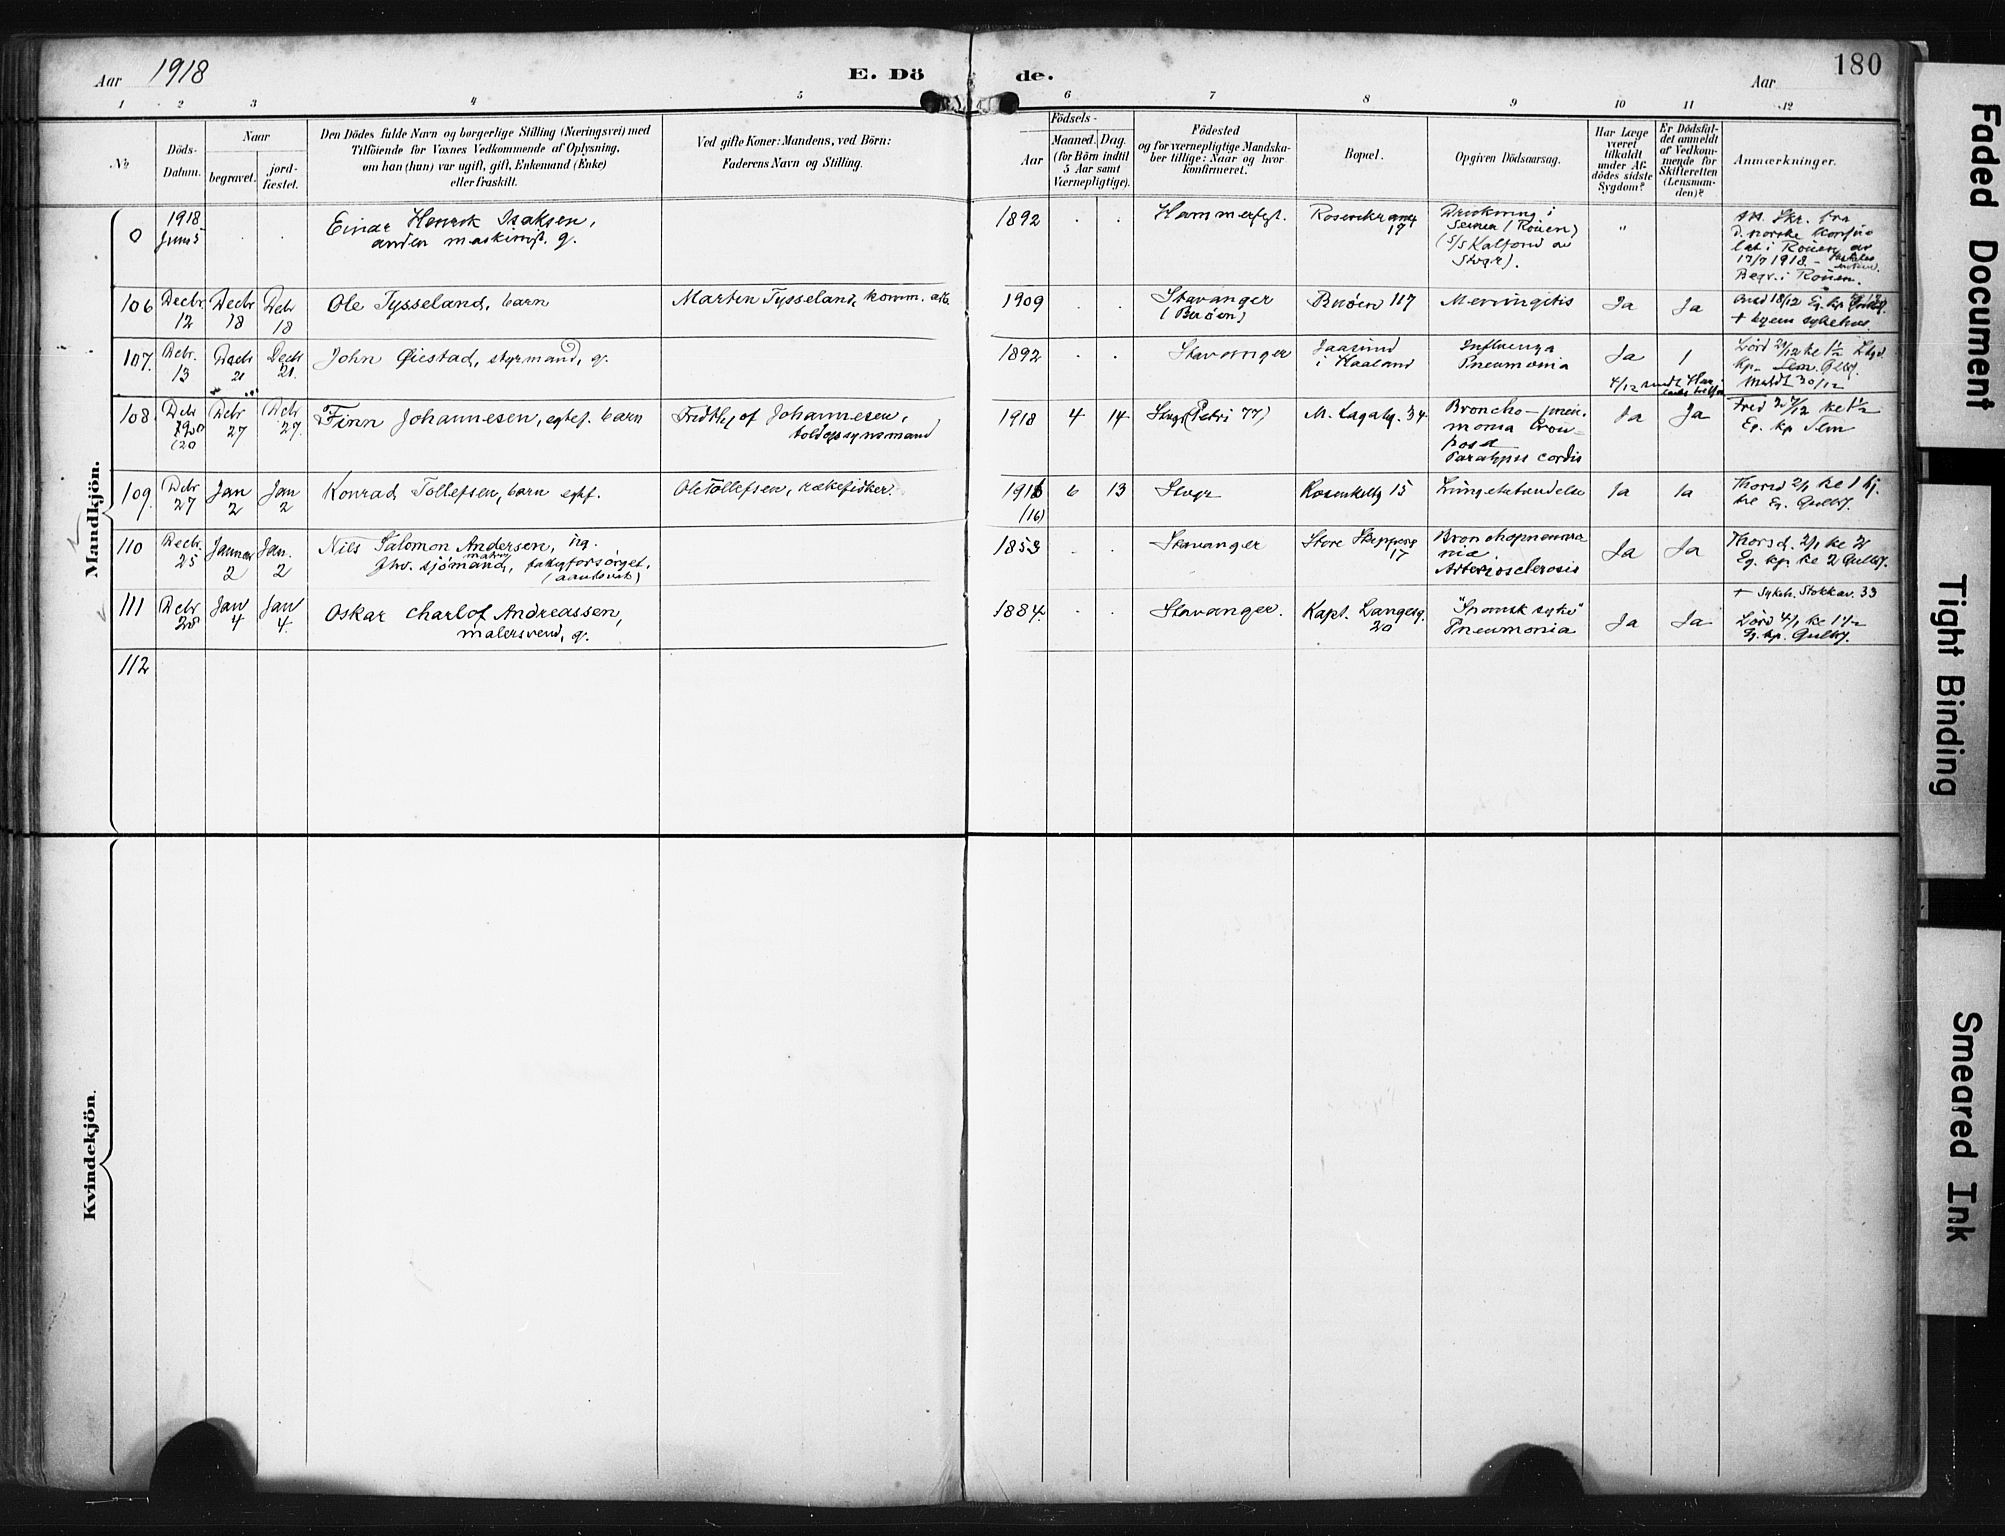 Aar 1918
E. Döde.
Aar
180
1 2 3 4 5 6 7 8 9 10 11 12
No
Döds-Datum.
Naar
begravet.
jord-fæstet.
Den Dödes fulde Navn og borgerlige Stilling (Næringsvei) med
Tilföiende for Voxnes Vedkommende af Oplysning,
om han (hun) var ugift, gift, Enkemand (Enke)
eller fraskilt.
Ved gifte Koner: Mandens, ved Börn:
Faderens Navn og Stilling.
Födsels-
Aar
Maaned. Dag.
(for Börn indtil
5 Aar samt
Værnepligtige).
Födested
og for værnepligtige Mandska-
ber tillige: Naar og hvor
konfirmeret.
Bopæl.
Opgiven Dödsaarsag.
Har Læge
været
tilkaldt
under Af-
dödes sidste
Sygdom?
Er Dödsfal-
det anmeldt
af Vedkom-
mende for
Skifteretten
(Lensman-
den)?
Anmærkninger.
Mandkjön.
0 1918 Juni 5 Einar Henrik Isaksen, anden maskinist. g. 1892 Hammerfest. 17 Drukning i Seinen (Rouen) (S/S Kalfond av Stvgr). " Skr. fra d. norske konsulat i Rouen av 17/7 1918 Begr. i Rouen.
106 Decbr 12 Decbr 18 Debr 18 Ole Tysseland, barn Martin Tysseland, komm. arb. 1909 Stavanger (Buøen) Buøen 117 Meningitis Ja Ja Onsd 18/12 Eg. kp. + byens sykehus.
107. Debr. 13 Decbr 21 Decbr 21. John Øiestad, styrmand, g. 1892 Stavanger Jaasund i Haaland Influenza Pneumonia Ja 1 Lørd 21/12 kl 1½ kp. Meldt 30/12
108. Debr 20 Debr 27 Debr 27. Finn Johannesen, egtef. barn Fridthjof Johannesen, toldopsynsmand 1918 4 14 Stvgr (Petri 77) M. Lagabg. 34 Broncho-pneumonia Crouposa Paralysis cordis Ja Ja Fred 27/12 kl 1½ Eg. kp
109. Debr 27 Jan 2 Jan 2 Konrad Tollefsen, barn egtf. Ole Tollefsen, rækefisker. 1916 (16) 6 13 Stvgr Rosenkelbg 15 Lungebetændelse Ja Ja Thorsd 2/1 kl 1
110 Decbr. 25 Januar 2 Jan. 2 Nils Salomon Andersen, fhv. sjømand, fattigforsørget. 1853 Stavanger Store Skippergt 17 Bronchopneumonia Arteriosclerosis Ja Ja Thorsd. 2/1 kl 2 Eg. kp. kl 2
111 Debr 28 Jan 4 Jan 4. Oskar Charlof Andreassen, malersvend, g. 1884. Stavanger. Kapt. Langesg. 20 "Spansk syke" Pneumonia Ja Ja + Sykeh. Stokkav. 33 Lørd 4/1 kl 1½ Eg. kp.
112
Kvindekjön.
Faded Document
Tight Binding
Smeared Ink